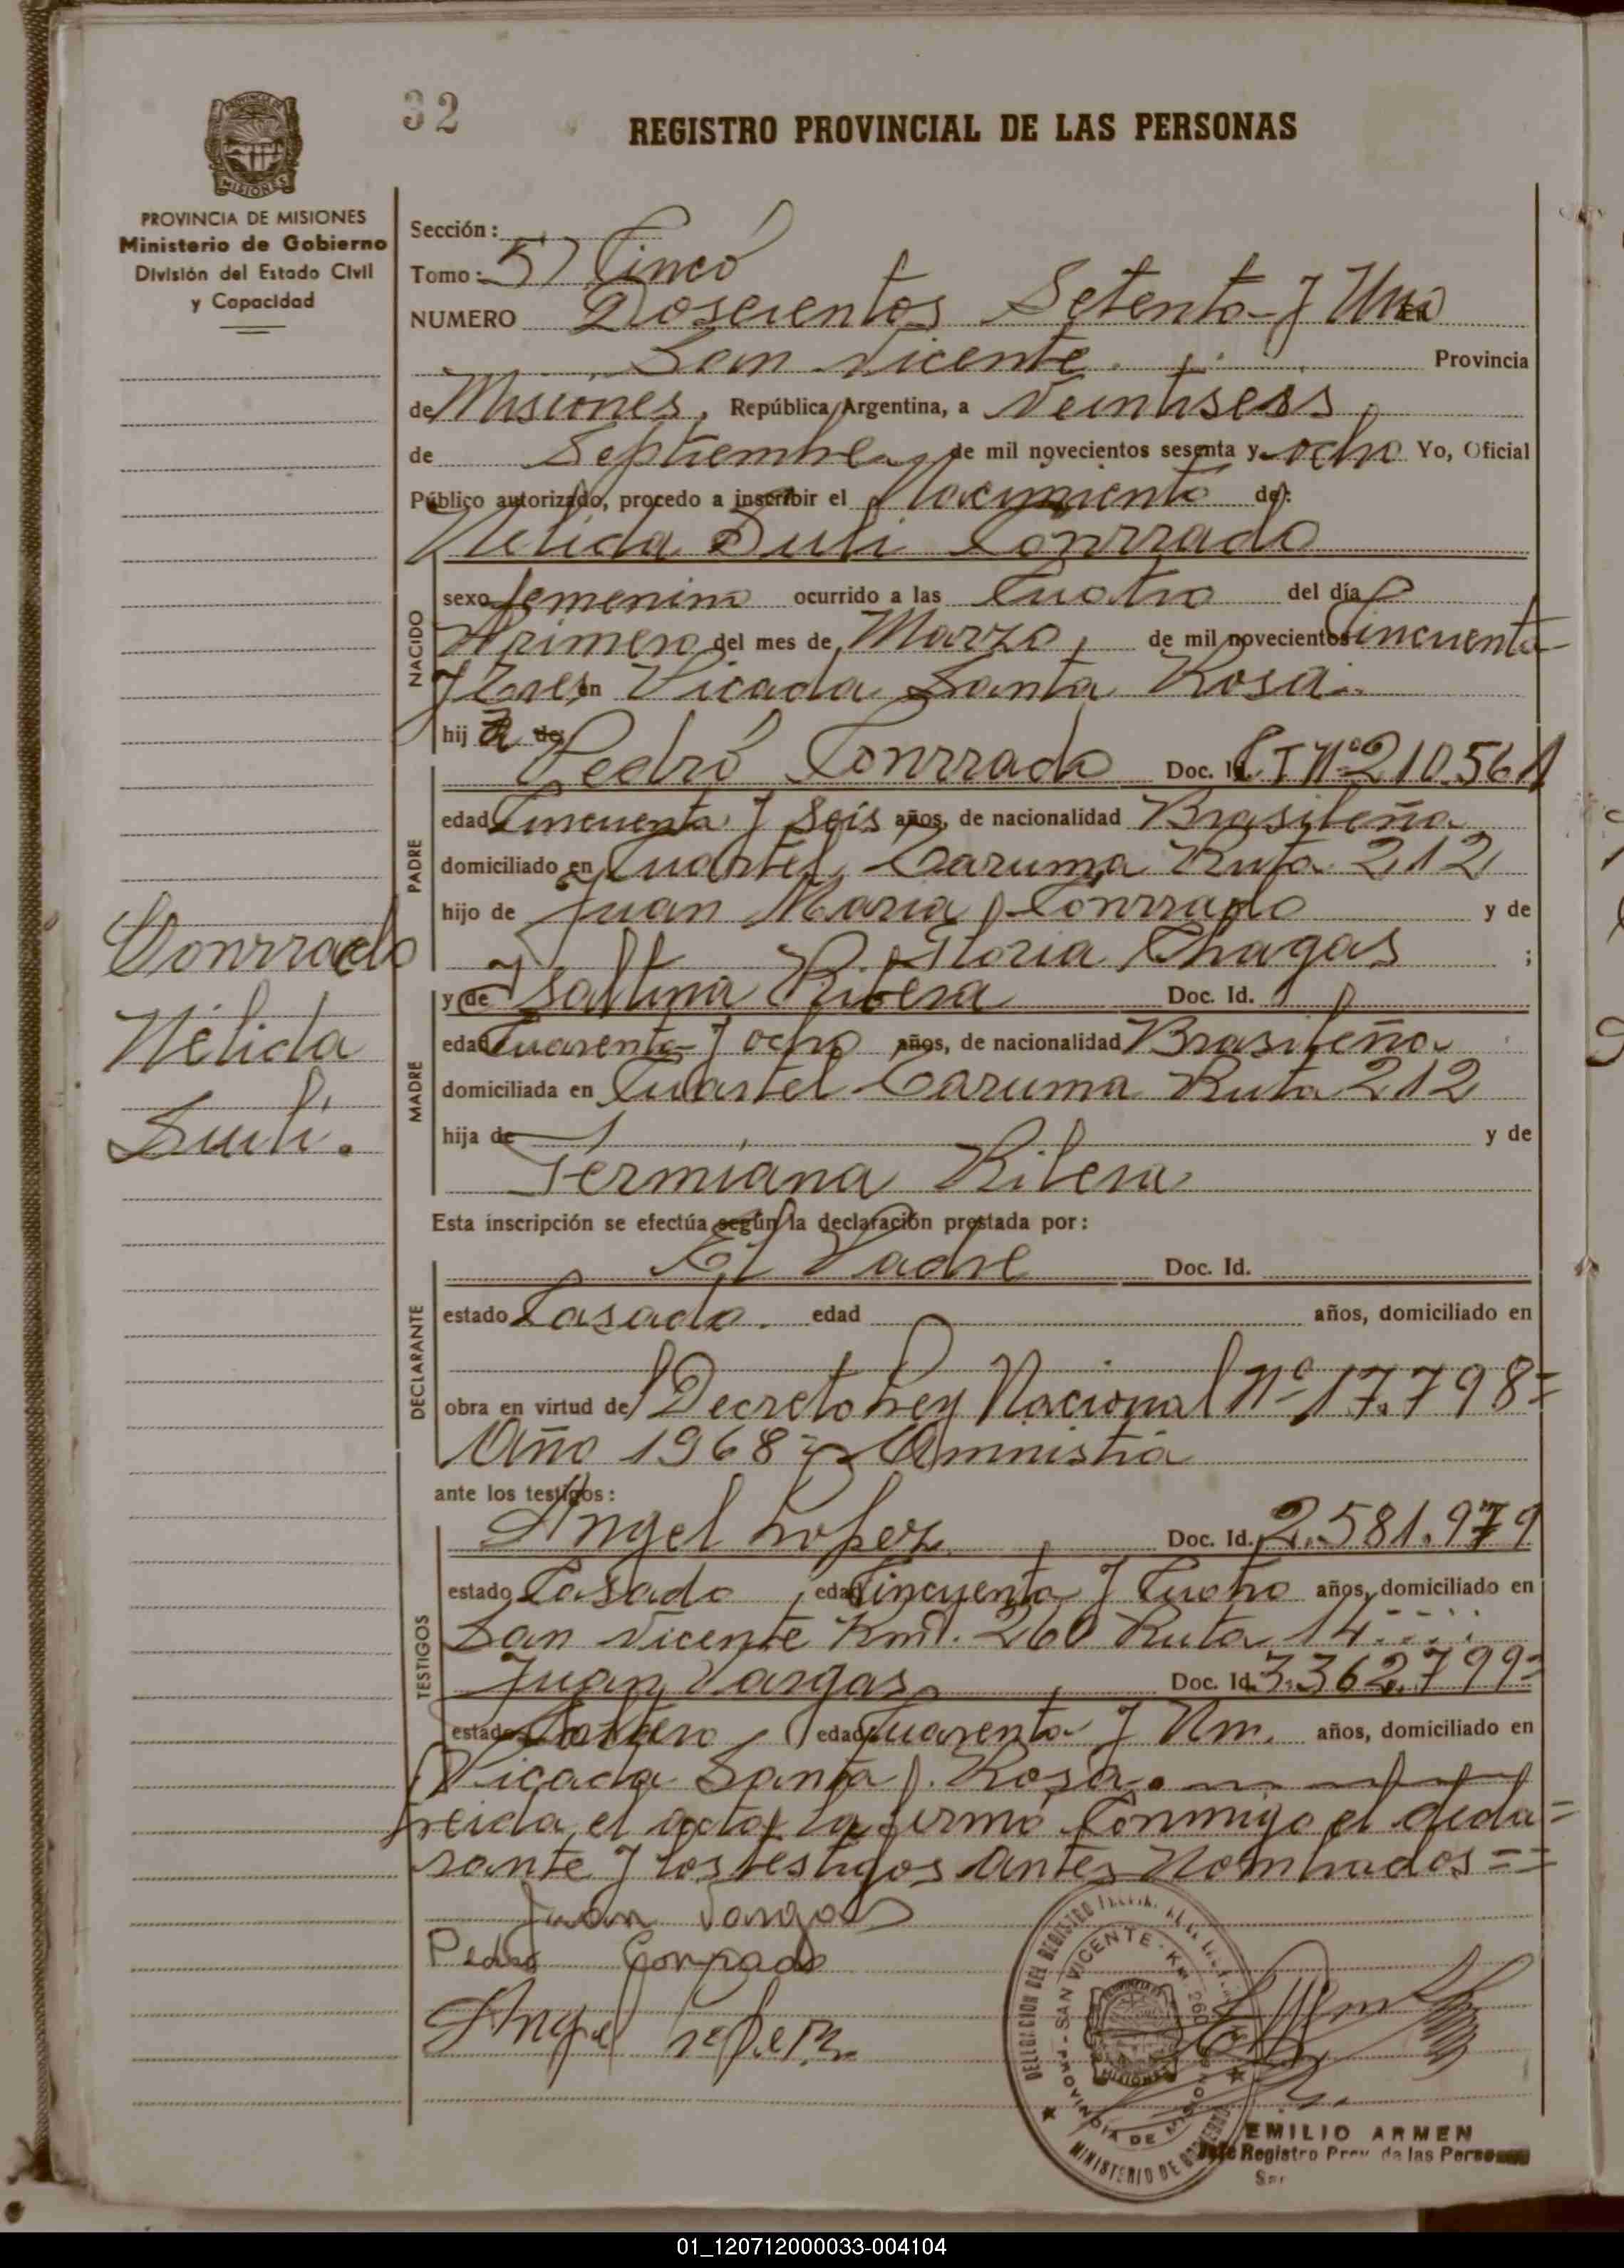 32
REGISTRO PROVINCIAL DE LAS PERSONAS
PROVINCIA DE MISIONES
Ministerio de Gobierno
División del Estado Civil
y Capacidad
Sección:
Tomo: 5) Cinco
NUMERO Doscientos Setenta y Uno
San Vicente Provincia
de Misiones, República Argentina, a Veintiseis
de Septiembre de mil novecientos sesenta y ocho Yo, Oficial
Público autorizado, procedo a inscribir el Nacimiento de:
Nélida Suli Conrrado
NACIDO
sexo femenino ocurrido a las Cuatro del día
Primero del mes de Marzo, de mil novecientos Cincuenta
y tres, en Picada Santa Rosa.
hij a de
PADRE
Pedro Conrrado Doc. Id. C I Nº 210.561
edad Cincuenta y Seis años, de nacionalidad Brasileña
domiciliado en Cuartel Caruma Ruta 212
hijo de Juan Maria Conrrado y de
Floria Chagas ;
Conrrado
Nélida
Suli.
MADRE
y de Ribera Doc. Id.
edad Cuarenta y ocho años, de nacionalidad Brasileña
domiciliada en Cuartel Caruma Ruta 212
hija de y de
Germiana Ribera
Esta inscripción se efectúa según la declaración prestada por:
DECLARANTE
El Padre Doc. Id.
estado Casado. edad años, domiciliado en
obra en virtud de Decreto Ley Nacional Nº 17.798=
Año 1968 Amnistia
ante los testigos:
TESTIGOS
Angel Lopez Doc. Id. 2.581.979
estado Casado, edad Cincuenta y Cuatro años, domiciliado en
San Vicente Km. 260 Ruta 14
Juan Vargas Doc. Id. 3.362.799=
estado Soltero, edad Cuarenta y Un. años, domiciliado en
Picada Santa Rosa.
Leida el acta, la firmó Conmigo el decla=
rante y los testigos Antes Nombrados==
Juan Vargas
Pedro Conrrado
Angel Lopez
SAN VICENTE - Km 260
PROVINCIA DE MISIONES
MINISTERIO DE GOBIERNO
EMILIO ARMEN
Jefe Registro Prov. de las Personas
01_120712000033-004104